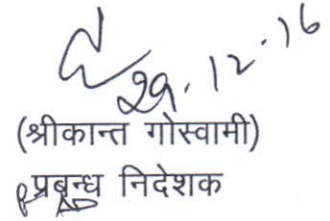 29.12.16
(श्रीकान्त गोस्वामी)
प्रबन्ध निदेशक